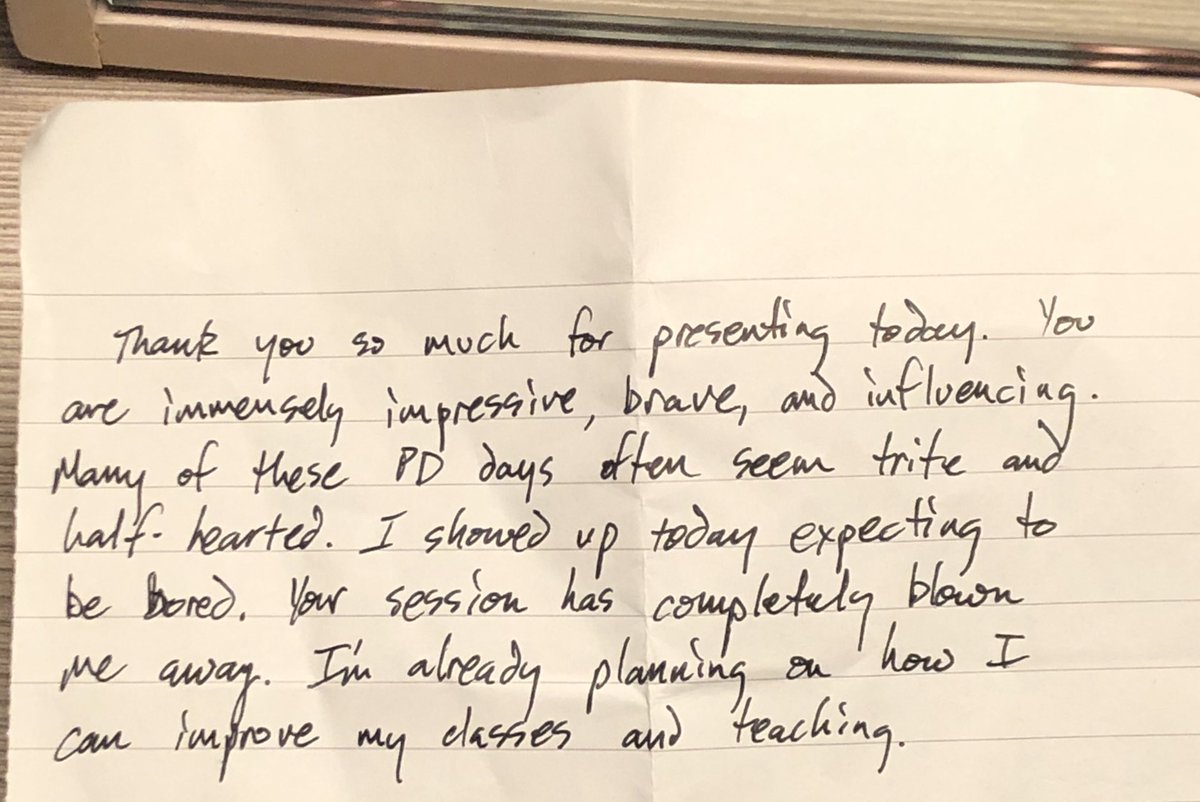 Thank you so much for presenting today. You
are immensely impressive, brave, and influencing.
Many of these PD days often seem trite and
half-hearted. I showed up today expecting to
be bored. Your session has completely blown
me away. I'm already planning on how I
can improve my classes and teaching.